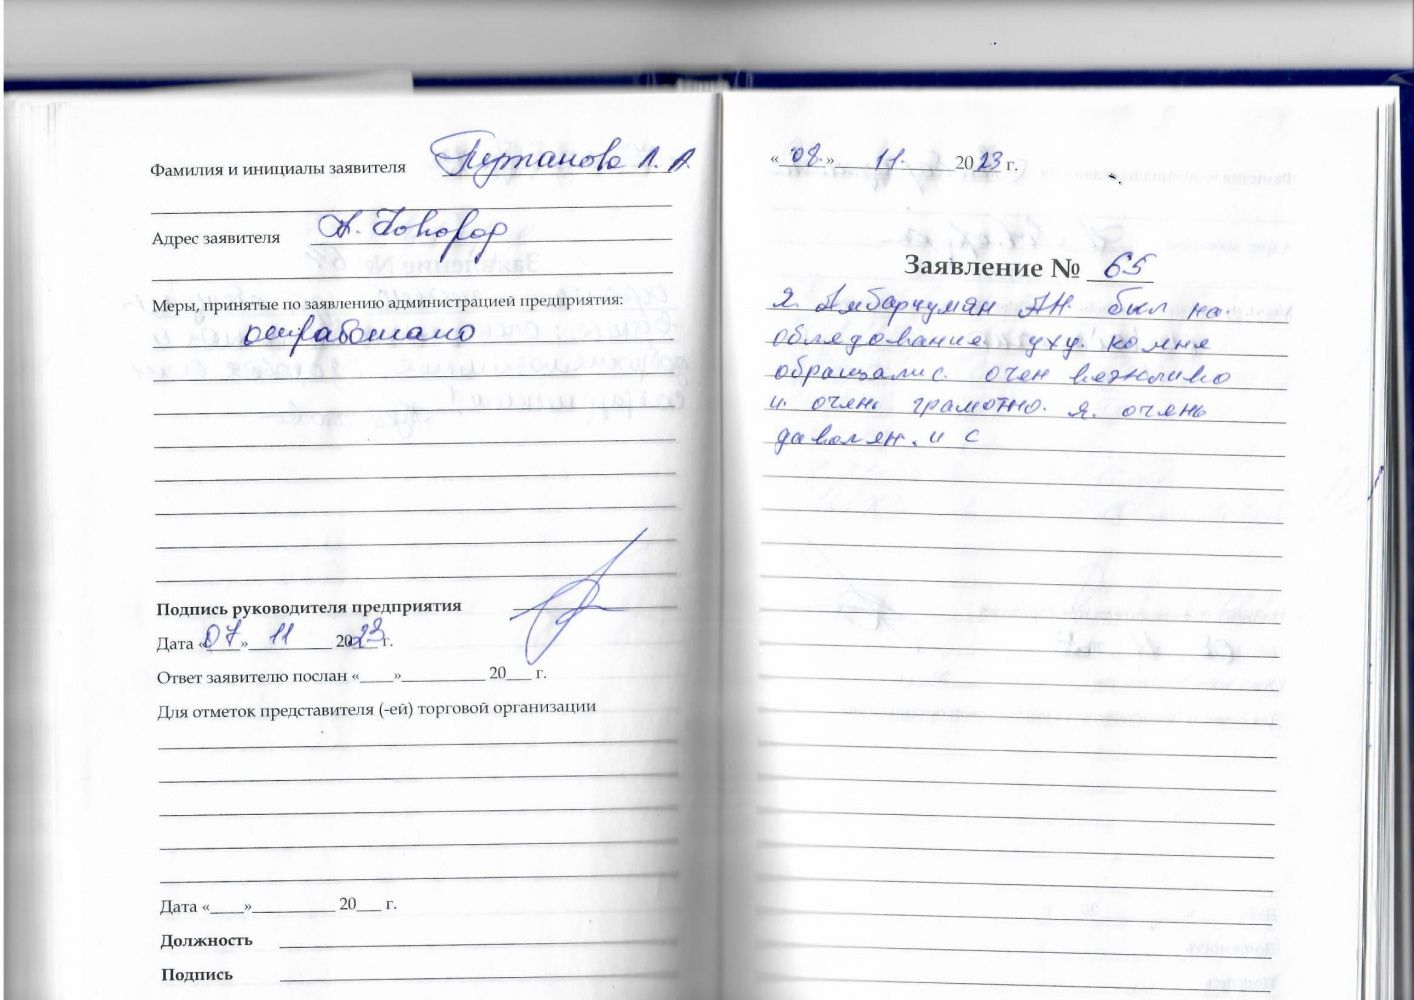 Фамилия и инициалы заявителя
Л. А.
Адрес заявителя
Н. Новгород
Меры, принятые по заявлению администрацией предприятия:
отработано
Подпись руководителя предприятия
Дата «07» 11 2023 г.
Ответ заявителю послан «____»__________ 20___ г.
Для отметок представителя (-ей) торговой организации
Дата «____»__________ 20___ г.
Должность
Подпись
«08.» 11. 2023 г.
Заявление № 65
Я. Амбарцумян АН. был на.
обледование уху. ко мне
обращалис. очен вежливо
и. очень грамотно. я. очень
даволен. и с